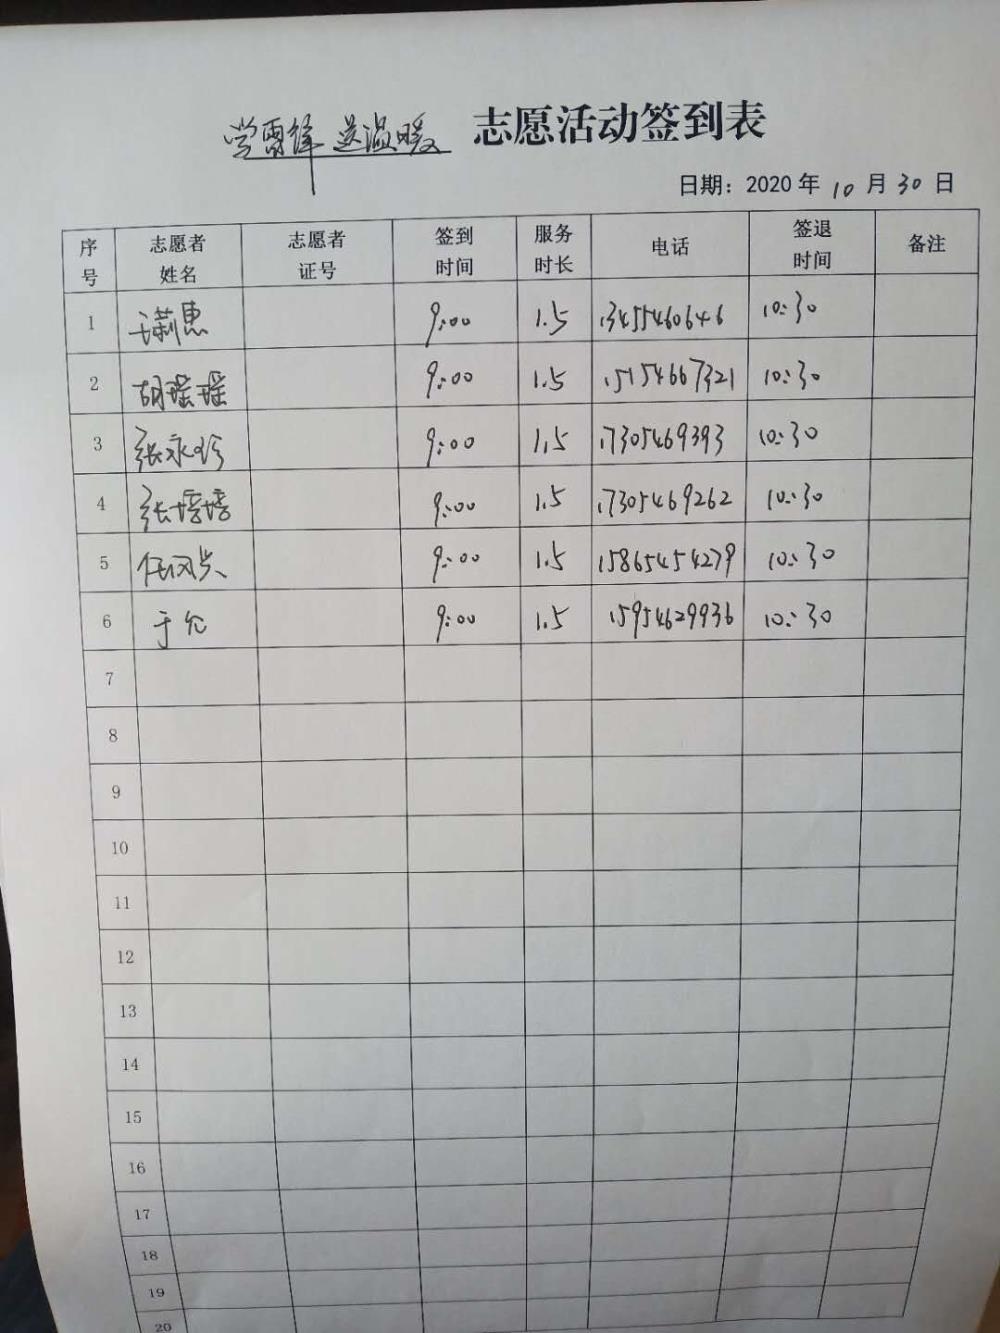 学雷锋 送温暖 志愿活动签到表
日期：2020 年 10 月 30 日
序号 志愿者姓名 志愿者证号 签到时间 服务时长 电话 签退时间 备注
1 于莉惠 9:00 1.5 13455460646 10:30
2 胡瑶瑶 9:00 1.5 15154667321 10:30
3 张永珍 9:00 1.5 17305469393 10:30
4 张培培 9:00 1.5 17305469262 10:30
5 任风兴 9:00 1.5 15865454279 10:30
6 于 9:00 1.5 15954629936 10:30
7
8
9
10
11
12
13
14
15
16
17
18
19
20